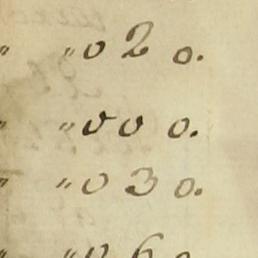 " " 0 2 0.
" " 0 0 0.
" " 0 3 0.
" " 0 6 0